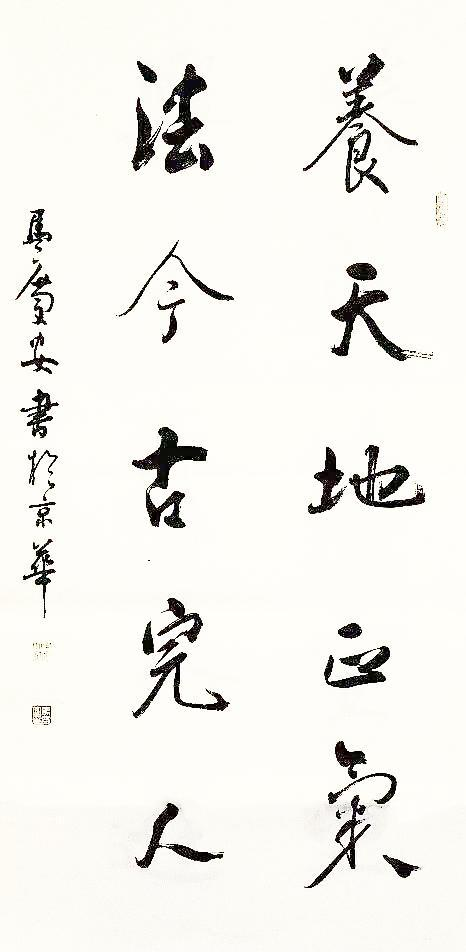 養天地正氣
法今古完人
馬慶安書於京華